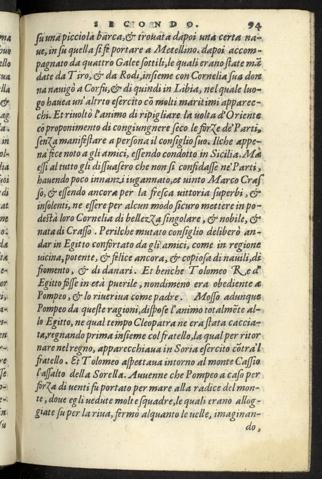 SECONDO. 94
su una picciola barca, & trouata dapoi una certa na-
ue, in su quella si fè portare a Metellino. dapoi accom-
pagnato da quattro Galee sottili, le quali erano state mā
date da Tiro, & da Rodi, insieme con Cornelia sua don
na nauigò a Corfù, & di quindi in Libia, nel quale luo-
go haueua un'altro esercito cō molti maritimi apparec-
chi. Et riuolto l'animo di ripigliare la uolta d'Oriente
cō proponimento di congiungnere seco le forze de' Parti,
senza manifestare a persona il consiglio suo. Ilche appe-
na fece noto a gli amici, essendo condotto in Sicilia. Ma
essi al tutto gli dissuasero che non si confidasse ne' Parti,
hauendo poco innanzi ingannato, et uinto Marco Craf
so, & essendo ancora per la fresca uittoria superbi, &
insolenti, ne essere per alcun modo sicuro mettere in po-
destà loro Cornelia di bellezza singolare, & nobile, &
nata di Crasso. Perilche mutato consiglio deliberò an-
dar in Egitto confortato da gli amici, come in regione
uicina, potente, & felice ancora, & copiosa di nauili, di
fromento, & di danari. Et benche Tolomeo Re d'
Egitto fosse in età puerile, nondimeno era obediente a
Pompeo, & lo riueriua come padre. Mosso adunque
Pompeo da queste ragioni, dispose l'animo totalmēte al-
lo Egitto, ne qual tempo Cleopatra ne era stata caccia-
ta, regnando prima insieme col fratello, la qual per ritor
nare nel regno, apparecchiaua in Soria esercito cōtra'l
fratello. Et Tolomeo aspettaua intorno al monte Cassio
l'assalto della Sorella. Auuenne che Pompeo a caso per
forza di uenti fu portato per mare alla radice del mon-
te, doue egli uedute molte squadre, le quali erano allog-
giate su per la riua, fermò alquanto le uelle, imaginan-
do,